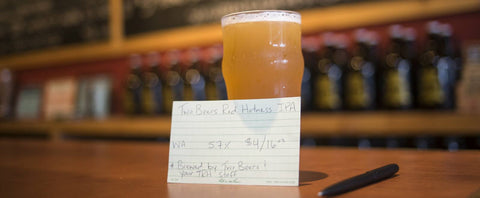 Two Beers Red Hotness IPA
WA 5.7% $4/16oz
* Brewed by Two Beers &
your TKH staff